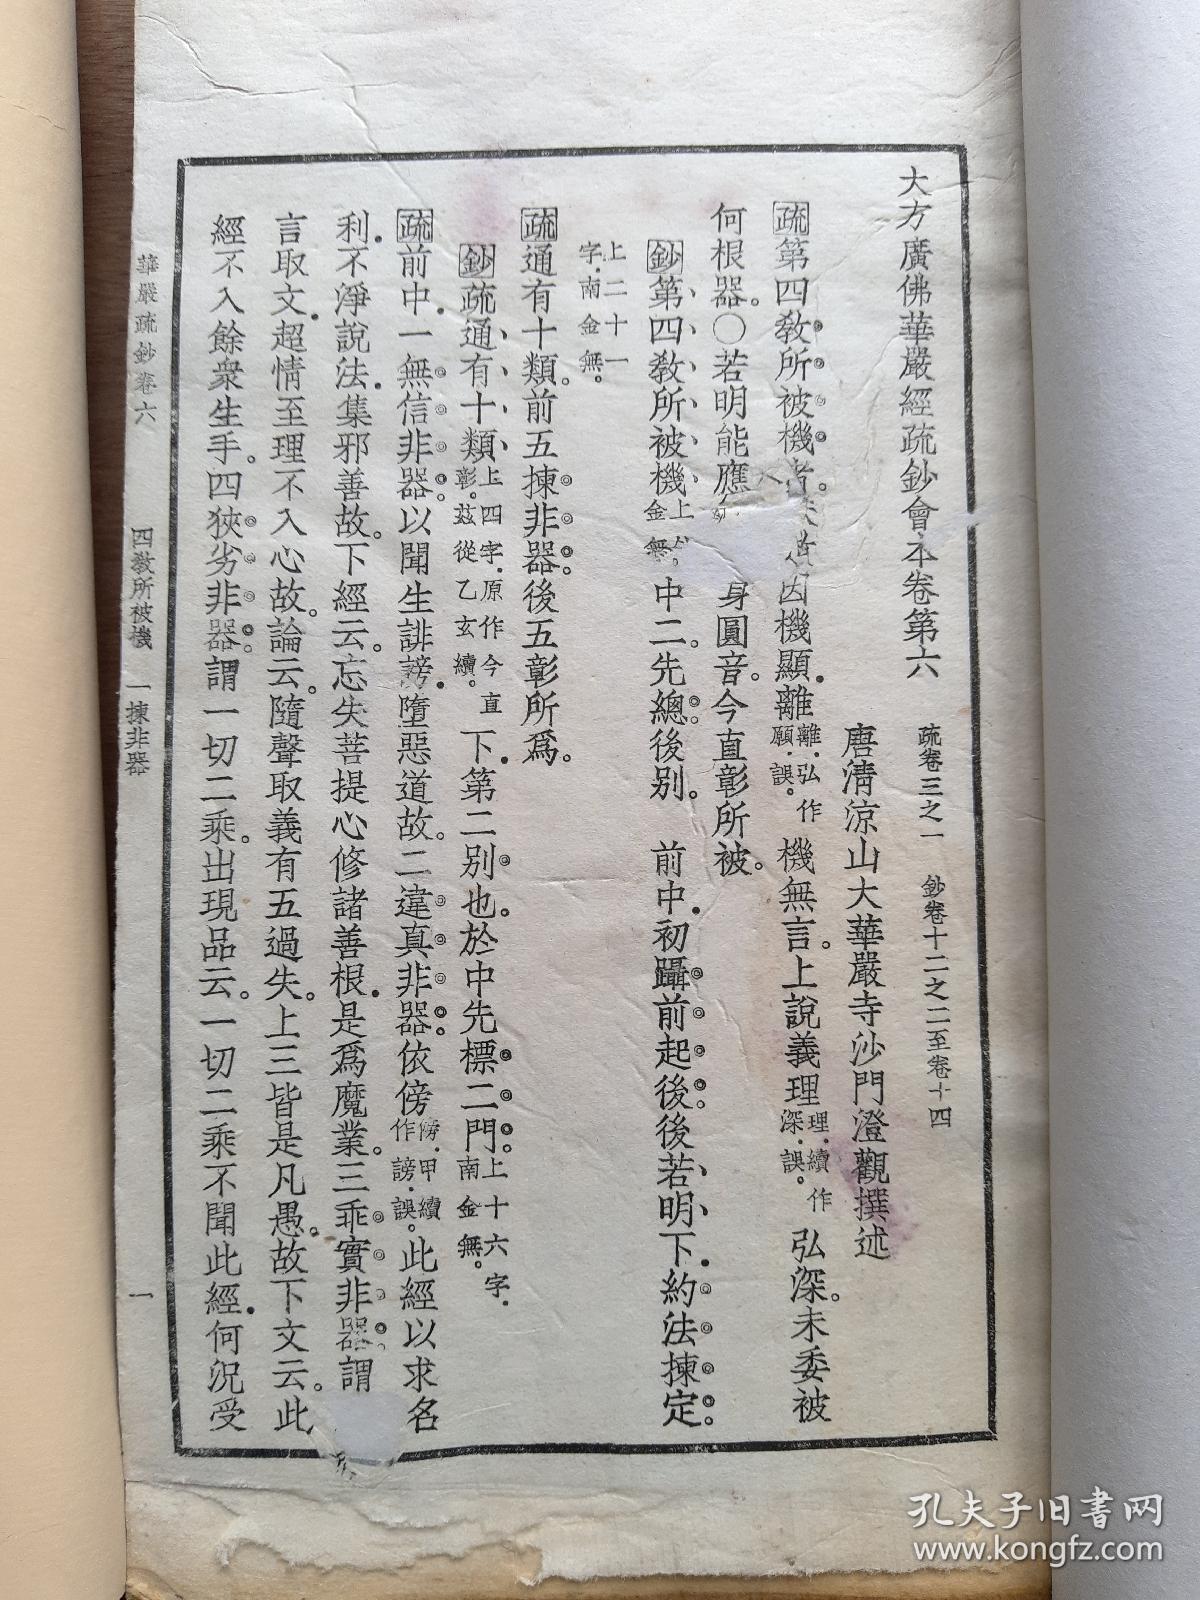 大方廣佛華嚴經疏鈔會本卷第六　疏卷三之一　鈔卷十二之二至卷十四
唐清涼山大華嚴寺沙門澄觀撰述
疏第四教所被機者因機顯離離·弘作願·誤。機無言。上說義理理·續作深·誤。弘深。未委被
何根器。○若明能應身圓音。今直彰所被。
鈔第四教所被機上金無。中二。先總後別。　前中。初躡前起後。後若明下。約法揀定。
上二十一字·南金無。
疏通有十類。前五揀非器。後五彰所爲。
鈔疏通有十類上四字·原作今直彰。茲從乙玄續。下。第二別也。於中先標二門。上十六字·南金無。
疏前中。一無信非器。以聞生誹謗。墮惡道故。二違真非器。依傍傍·甲續作謗·誤。此經以求名
利。不淨說法。集邪善故。下經云。忘失菩提心修諸善根。是爲魔業。三乖實非器。謂
言取文。超情至理不入心故。論云。隨聲取義有五過失。上三皆是凡愚。故下文云。此
經不入餘衆生手。四狹劣非器。謂一切二乘。出現品云。一切二乘不聞此經。何況受
華嚴疏鈔卷六　四教所被機　一揀非器　一
孔夫子旧书网
www.kongfz.com